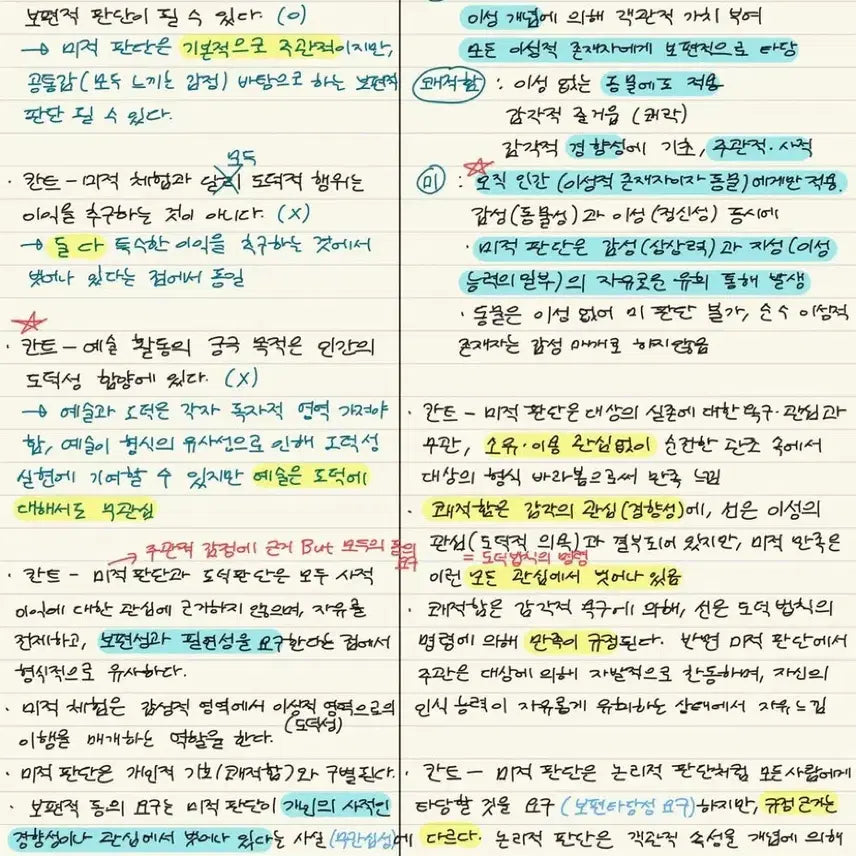 보편적 판단이 될 수 있다. (O)
→ 미적 판단은 기본적으로 주관적이지만,
공통감(모두 느끼는 감정) 바탕으로 하는 보편적
판단 될 수 있다.
모두
· 칸트 - 미적 체험과 달리 도덕적 행위는
이익을 추구하는 것이 아니다. (X)
→ 둘 다 특수한 이익을 추구하는 것에서
벗어나 있다는 점에서 동일
· 칸트 - 예술 활동의 궁극 목적은 인간의
도덕성 함양에 있다. (X)
→ 예술과 도덕은 각자 독자적 영역 가져야
함, 예술이 형식의 유사성으로 인해 도덕성
실현에 기여할 수 있지만 예술은 도덕에
대해서도 무관심
→ 주관적 감정에 근거 But 모두의 동의
요구
· 칸트 - 미적 판단과 도덕판단은 모두 사적
이익에 대한 관심에 근거하지 않으며, 자유를
전제하고, 보편성과 필연성을 요구한다는 점에서
형식적으로 유사하다.
· 미적 체험은 감성적 영역에서 이성적 영역으로의
(도덕성)
이행을 매개하는 역할을 한다.
· 미적 판단은 개인적 기호(쾌적함)와 구별된다.
· 보편적 동의 요구는 미적 판단이 개인의 사적인
경향성이나 관심에서 벗어나 있다는 사실 (무관심성)에
이성 개념에 의해 객관적 가치 부여
모든 이성적 존재자에게 보편적으로 타당
쾌적함 : 이성 없는 동물에도 적용
감각적 즐거움 (쾌락)
감각적 경향성에 기초, 주관적·사적
미 : 오직 인간 (이성적 존재자이자 동물)에게만 적용.
감성(동물성)과 이성(정신성) 동시에
· 미적 판단은 감성(상상력)과 지성(이성
능력의 일부)의 자유로운 유희 통해 발생
· 동물은 이성 없어 미 판단 불가, 순수 이성적
존재자는 감성 매개로 하지않음
· 칸트 - 미적 판단은 대상의 실존에 대한 욕구·관심과
무관, 소유·이용 관심없이 순전한 관조 속에서
대상의 형식 바라봄으로써 만족 느낌
· 쾌적함은 감각의 관심(경향성)에, 선은 이성의
관심(도덕적 의욕)과 결부되어 있지만, 미적 만족은
= 도덕법칙의 명령
이런 모든 관심에서 벗어나 있음
· 쾌적함은 감각적 욕구에 의해, 선은 도덕 법칙의
명령에 의해 만족이 규정된다. 반면 미적 판단에서
주관은 대상에 의해 자발적으로 활동하며, 자신의
인식 능력이 자유롭게 유희하는 상태에서 자유 느낌
· 칸트 - 미적 판단은 논리적 판단처럼 모든사람에게
타당할 것을 요구 (보편타당성 요구)하지만, 규정근거는
다르다. 논리적 판단은 객관적 속성을 개념에 의해